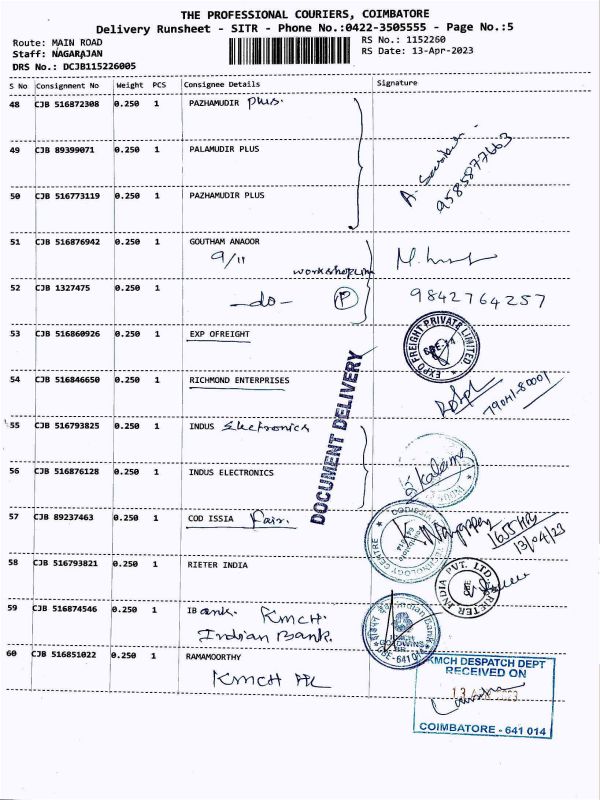 THE PROFESSIONAL COURIERS, COIMBATORE
Delivery Runsheet - SITR - Phone No.:0422-3505555 - Page No.:5
Route: MAIN ROAD
Staff: NAGARAJAN
DRS No.: DCJB115226005
RS No.: 1152260
RS Date: 13-Apr-2023
S No Consignment No Weight PCS Consignee Details Signature
48 CJB 516872308 0.250 1 PAZHAMUDIR plus.
49 CJB 89399071 0.250 1 PALAMUDIR PLUS
9585877663
50 CJB 516773119 0.250 1 PAZHAMUDIR PLUS
51 CJB 516876942 0.250 1 GOUTHAM ANAOOR
9/11
52 CJB 1327475 0.250 1
-do- P 9842764257
53 CJB 516860926 0.250 1 EXP OFREIGHT
EXPO FREIGHT PRIVATE LIMITED
54 CJB 516846650 0.250 1 RICHMOND ENTERPRISES
79041-80001
DOCUMENT DELIVERY
55 CJB 516793825 0.250 1 INDUS Electronics
56 CJB 516876128 0.250 1 INDUS ELECTRONICS
57 CJB 89237463 0.250 1 COD ISSIA Fair.
1655 Hrs
13/04/23
58 CJB 516793821 0.250 1 RIETER INDIA
RIETER INDIA PVT. LTD.
59 CJB 516874546 0.250 1 IB ank. KMCH.
Indian Bank.
Indian Bank
KMCH
GOLDWINS
CBE - 641 014
60 CJB 516851022 0.250 1 RAMAMOORTHY
KMCH
KMCH DESPATCH DEPT
RECEIVED ON
COIMBATORE - 641 014